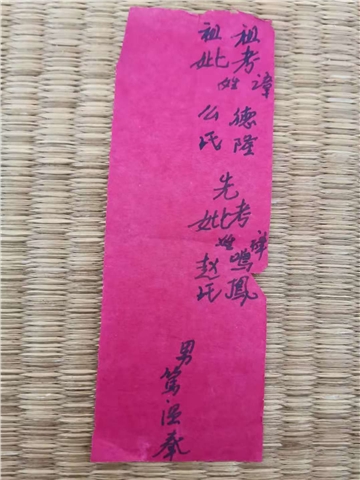 祖考諱德隆
祖妣姓么氏
先
考諱鳴鳳
妣姓赵氏
男篤温奉